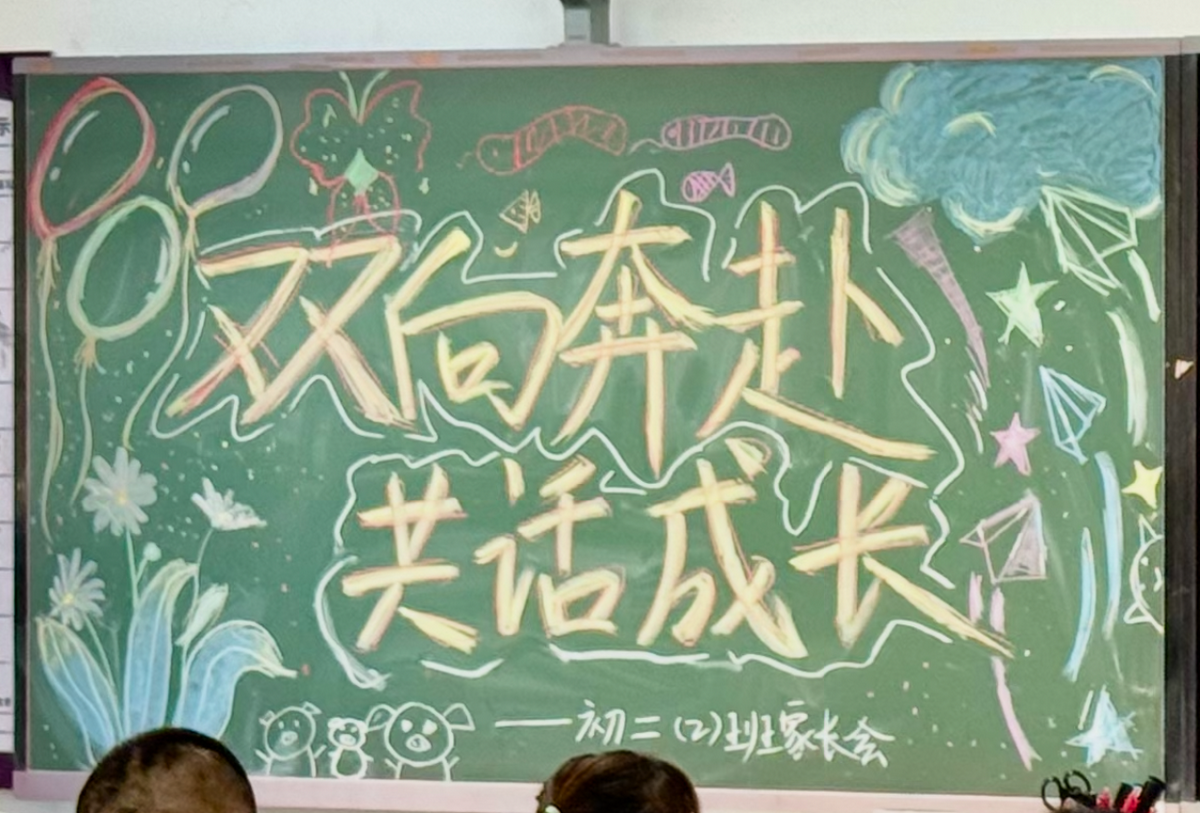 双向奔赴
共话成长
——初二(2)班家长会
示